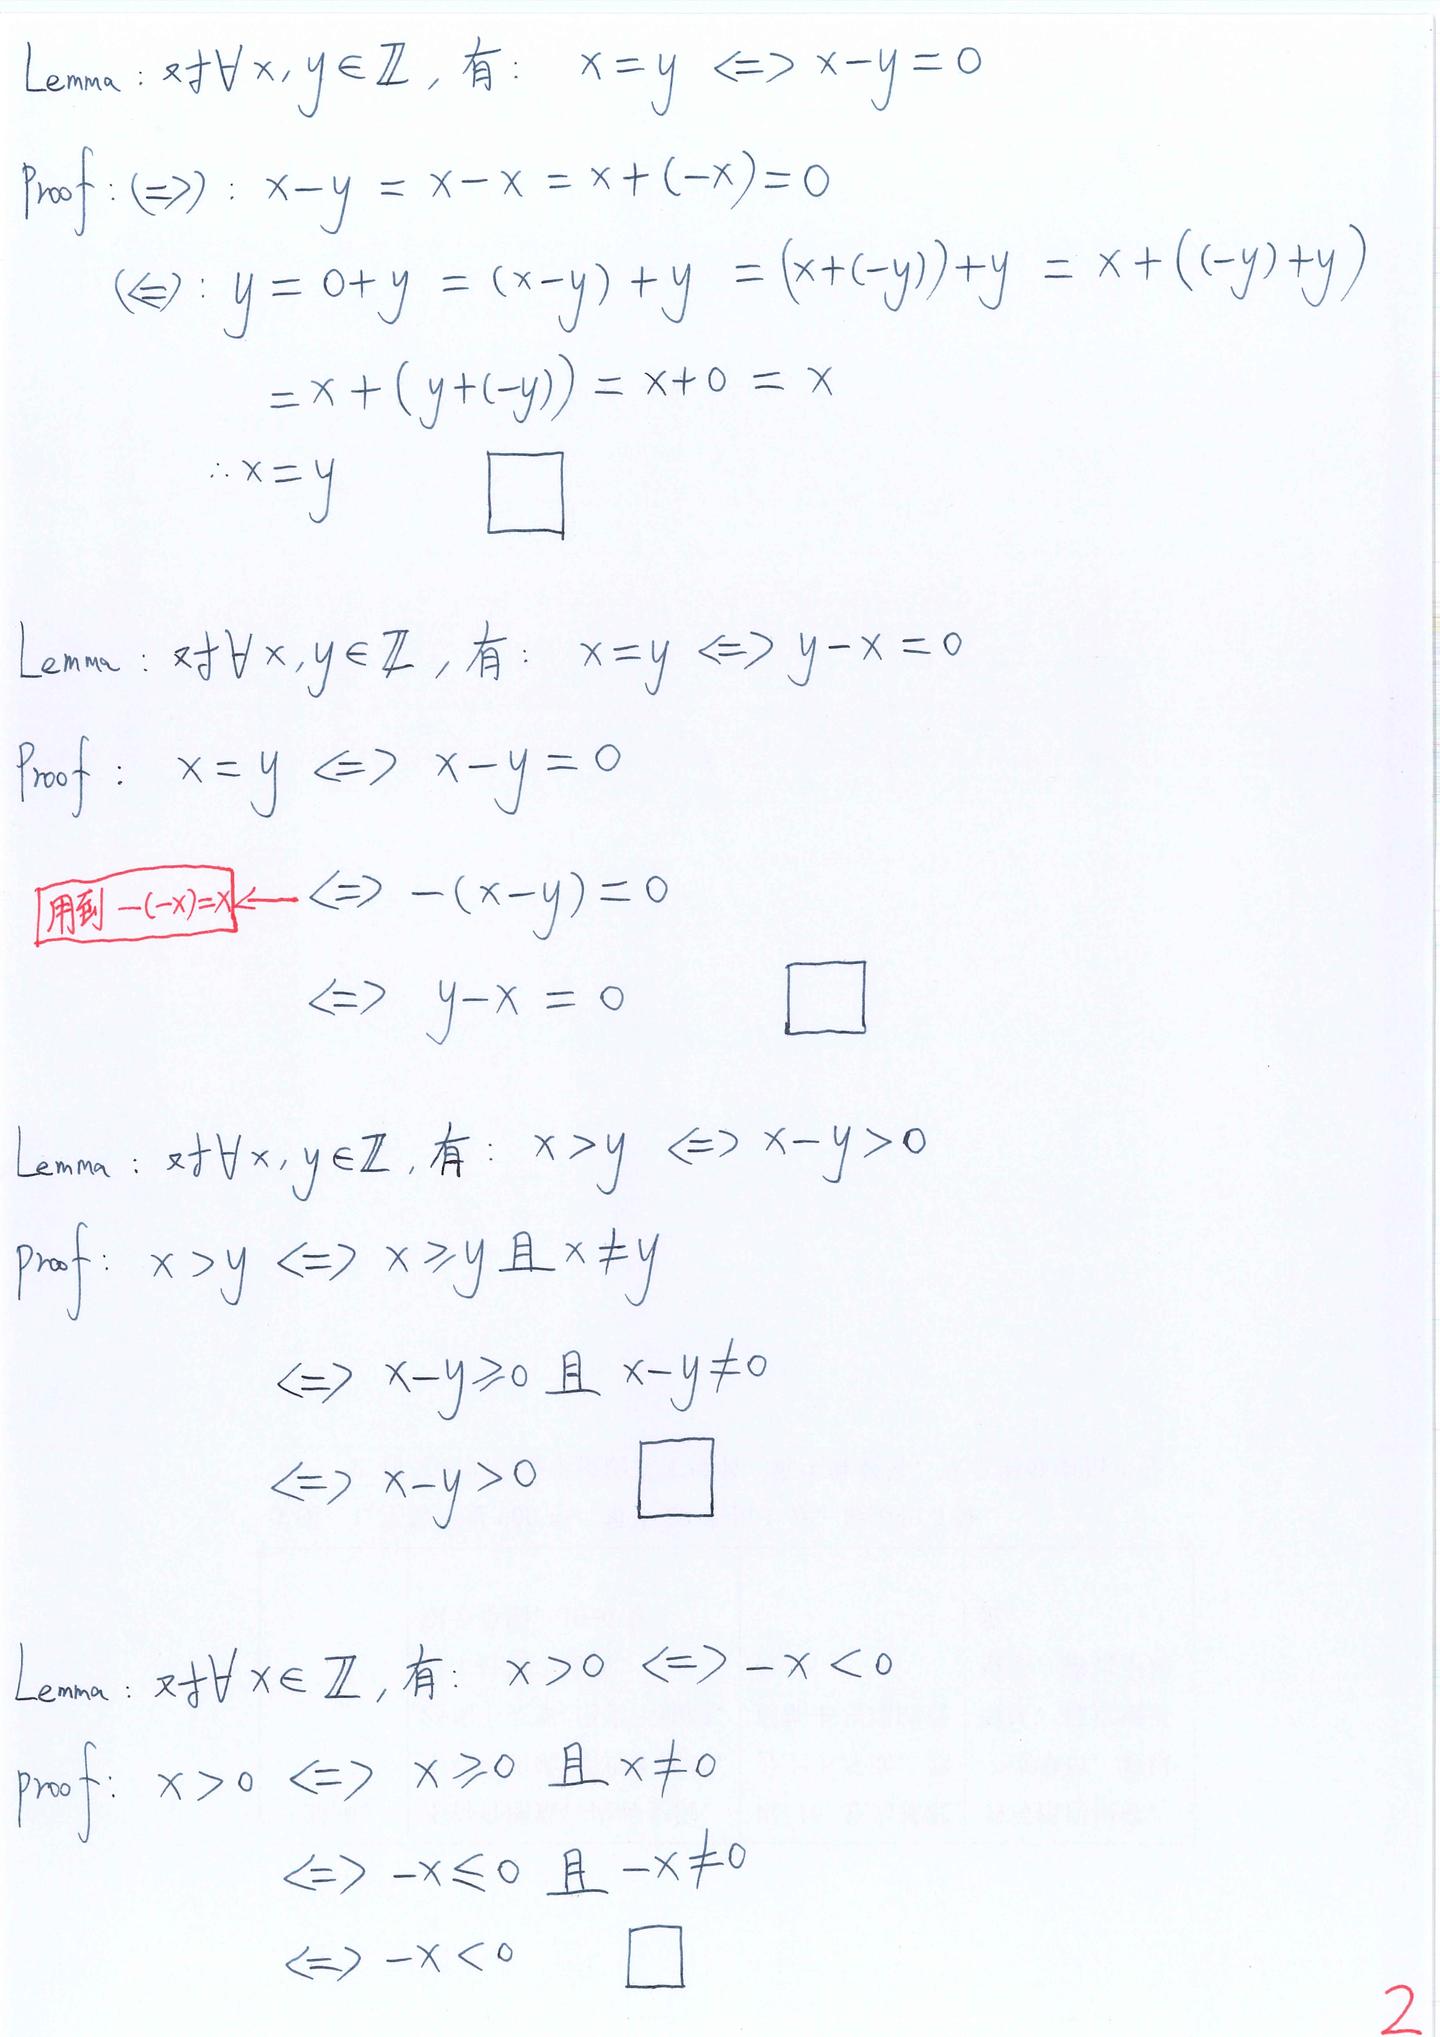 Lemma : 对∀x, y∈ℤ, 有: x=y <=> x-y=0
Proof: (=>): x-y = x-x = x+(-x)=0
(<=): y=0+y =(x-y)+y =(x+(-y))+y = x+((-y)+y)
=x+(y+(-y))=x+0=x
∴x=y □
Lemma : 对∀x, y∈ℤ, 有: x=y <=> y-x=0
Proof: x=y <=> x-y=0
用到 -(-x)=x ← <=> -(x-y)=0
<=> y-x=0 □
Lemma : 对∀x, y∈ℤ, 有: x>y <=> x-y>0
Proof: x>y <=> x⩾y且x≠y
<=> x-y⩾0 且 x-y≠0
<=> x-y>0 □
Lemma : 对∀x∈ℤ, 有: x>0 <=> -x<0
Proof: x>0 <=> x⩾0 且 x≠0
<=> -x⩽0 且 -x≠0
<=> -x<0 □
2